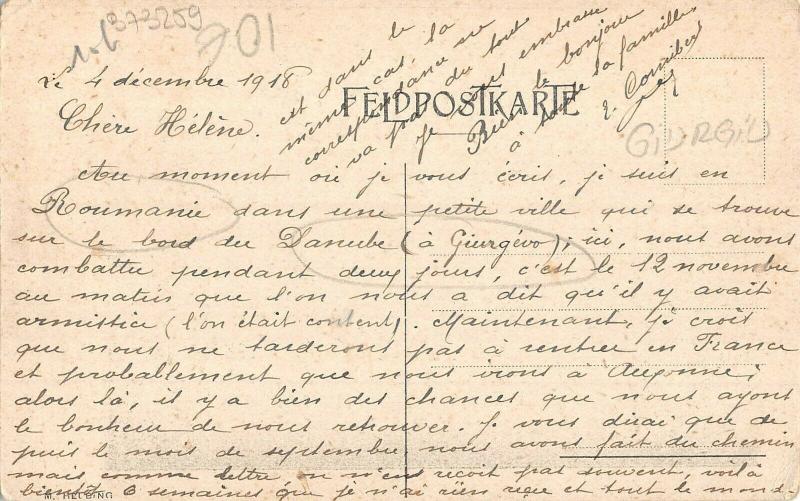 373259
701
Le 4 décembre 1918
FELDPOSTKARTE
GIURGIU
Chère Hélène.
Au moment où je vous écris, je suis en
Roumanie dans une petite ville qui se trouve
sur le bord du Danube (à Giurgévo); ici, nous avons
combattu pendant deux jours, c'est le 12 novembre
au matin que l'on nous a dit qu'il y avait
armistice (l'on était content). Maintenant, je crois
que nous ne tarderons pas à rentrer en France
et proballement que nous irons à Auxonne;
alors là, il y a bien des chances que nous ayons
le bonheur de nous retrouver. Je vous dirai que de
puis le mois de septembre nous avons fait du chemin
mais comme lettre on n'en reçoit pas souvent, voilà
bientôt 6 semaines que je n'ai rien reçu et tout le monde
est dans le
même cas, la
correspondance ne
va pas du tout
Je vous embrasse
Bien le bonjour
à toute sa famille
M. HELBING